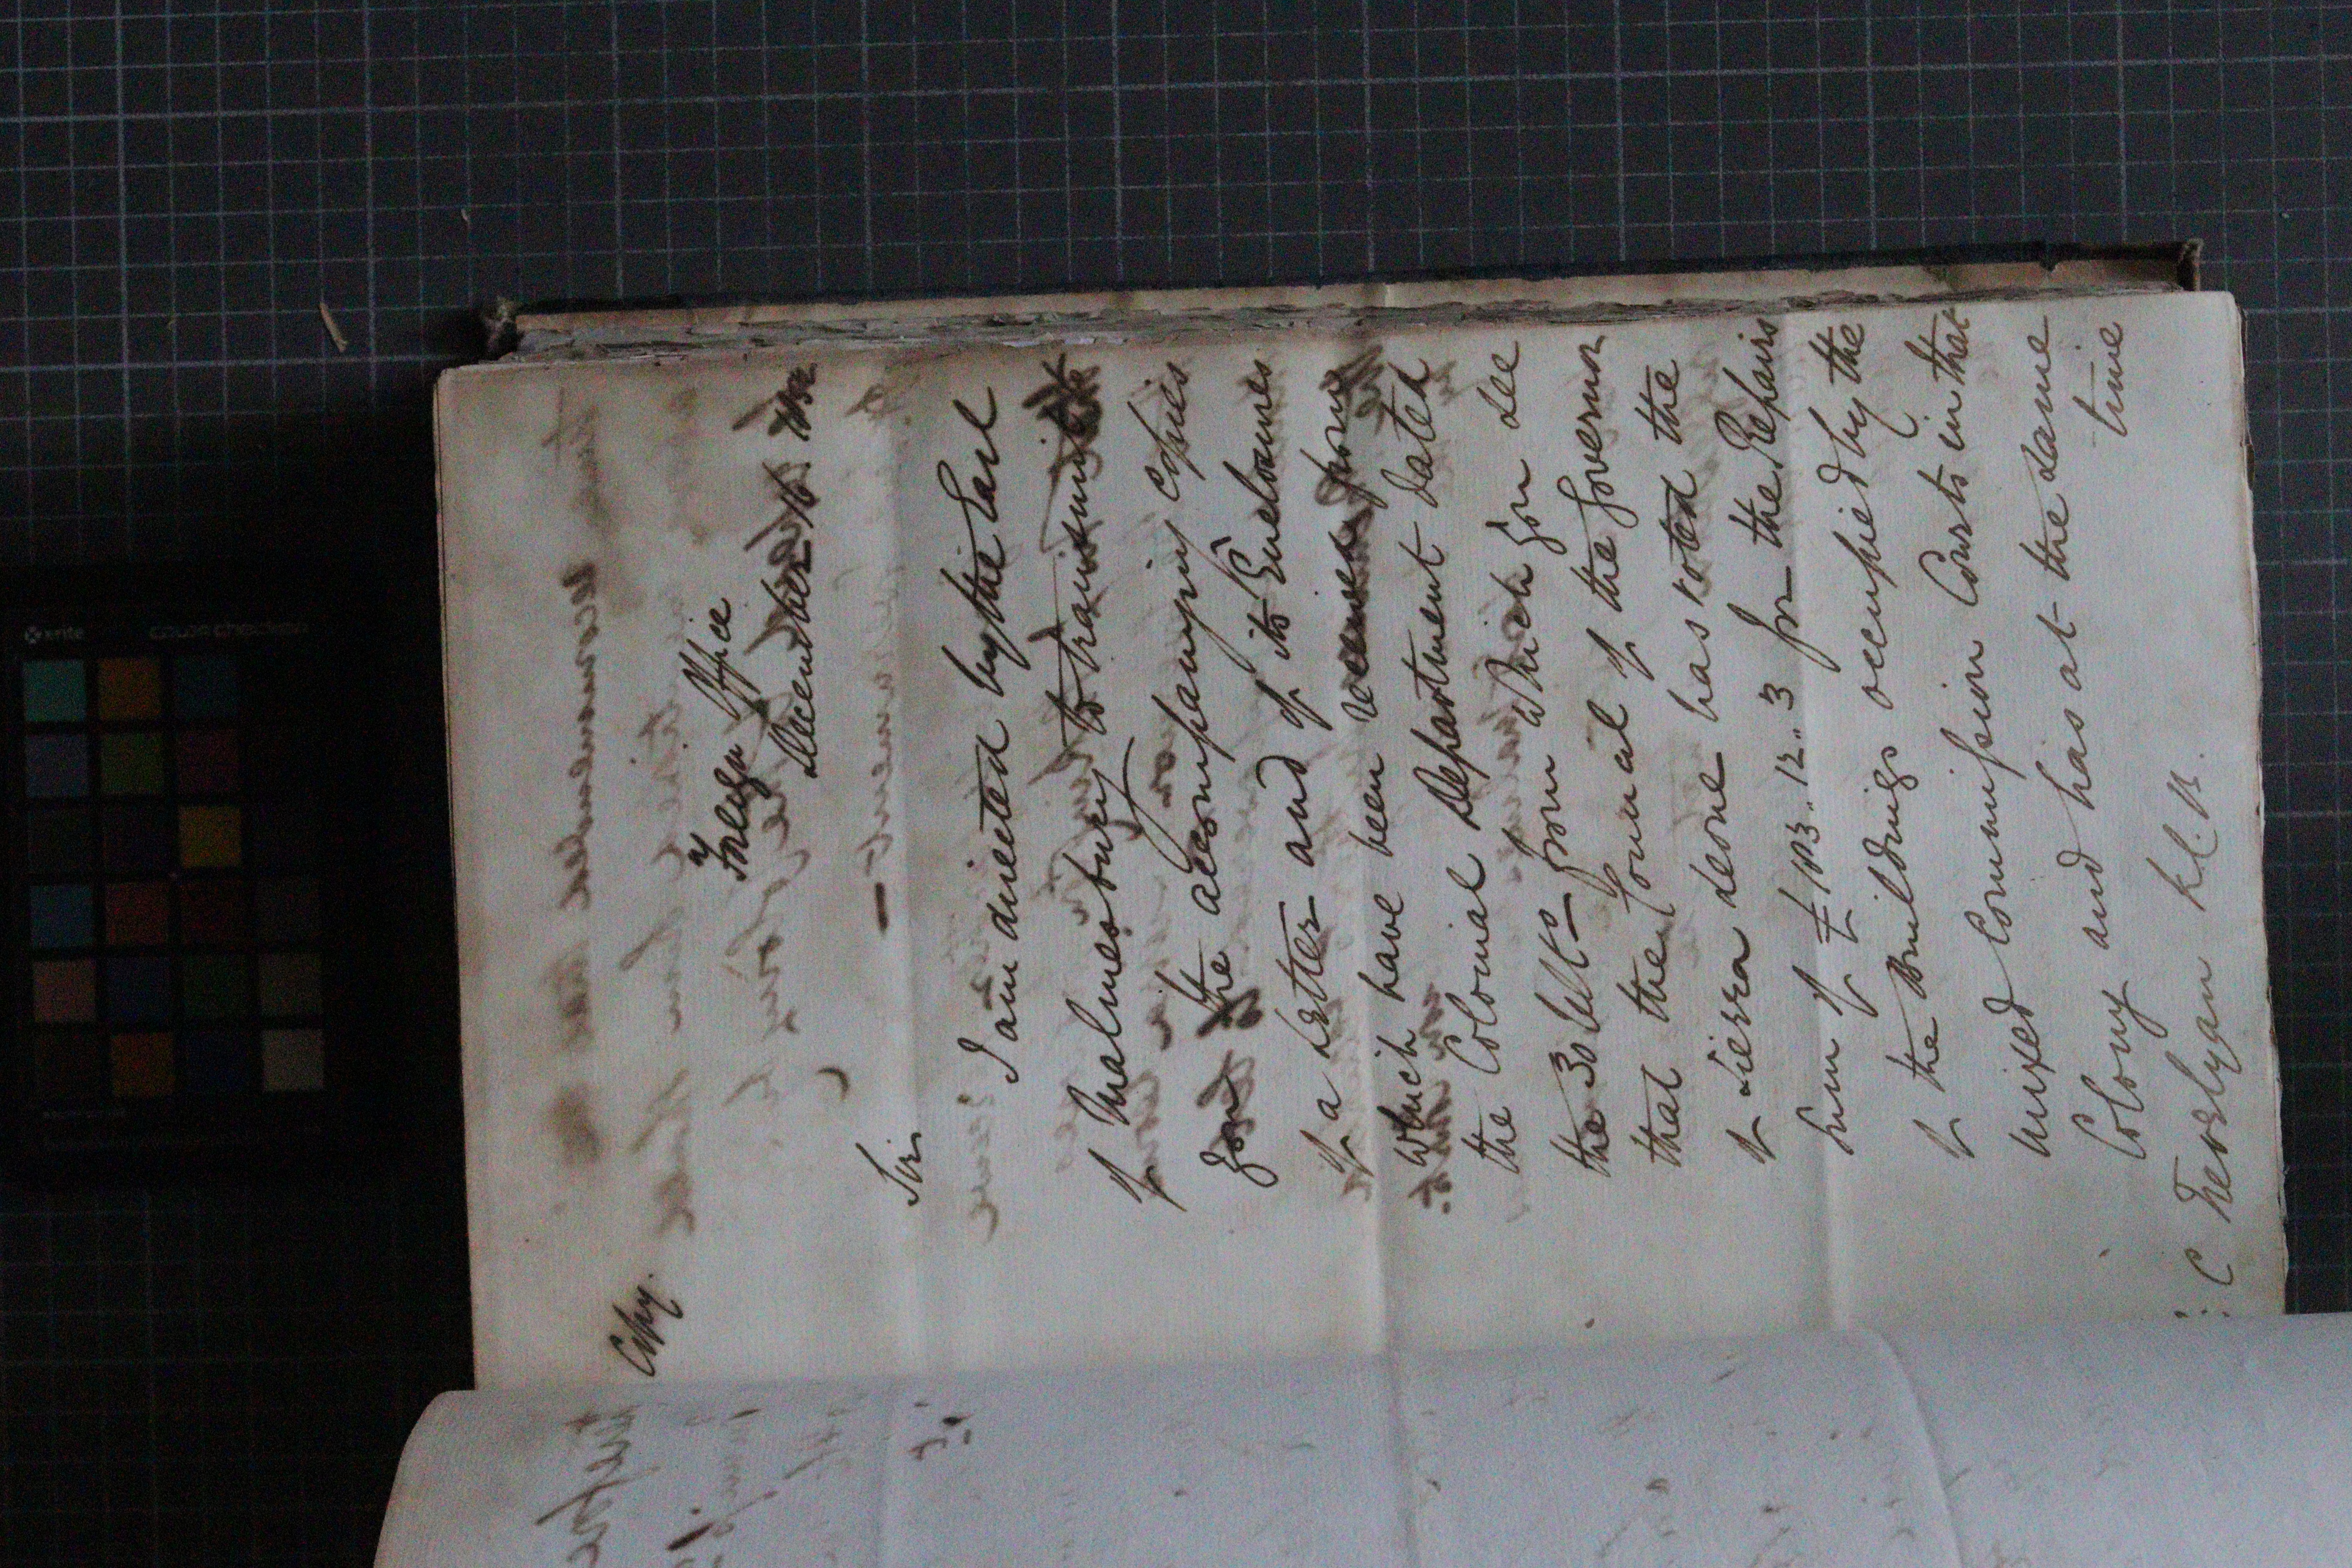 Copy.
Foreign Office
December 16. 1852
Sir
I am directed by the Earl
of Malmesbury to transmit to
you the accompanying copies
of a Letter and of its Enclosures
which have been received from
the Colonial Department dated
the 30 Ult° from which you see
that the Council of the Governor
of Sierra Leone has voted the
sum of £103..12..3 for the Repairs
of the Buildings occupied by the
Mixed Commission Courts in that
Colony and has at the same
time
C Trevelyan K.C.B.